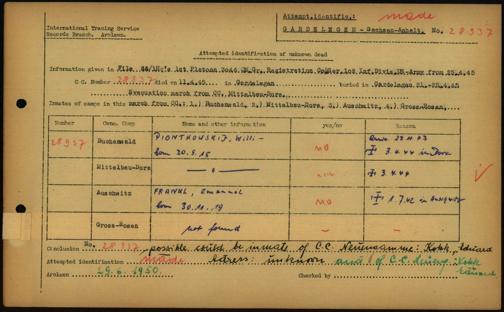 International Tracing Service
Records Branch. Arolsen.
Attempt.identific.: made
GARDELEGEN - Sachsen-Anhalt. No. 28937
Attempted identification of unknown dead
Information given in File 1st Platoon 3046 Registration 1st Inf.Divis.US-Army from 25.4.45
C.C. Number 28937 died on 11.4.45 in Gardelegen buried on Gardelegen 21.-25.4.45
Evacuation march from CC. Mittelbau-Dora.
Inmates of camps in this march from CC.: 1.) Buchenwald, 2.) Mittelbau-Dora, 3.) Auschwitz, 4.) Gross-Rosen.
Number Conc. Camp Name and other information yes/no Reason
28937 Buchenwald PIONTKOWSKIJ, Willi - no
born 20.5.15 3.4.44 in Dora
Mittelbau-Dora 3.4.44
Auschwitz FRANKL, Emanuel no 1.7.42 in
born 30.11.19
Gross-Rosen not found - -
Conclusion No. 28937 possible could be inmate of C.C. Neuengamme: Eduard
Attempted identification made Adress: unknown
Arolsen 29.6.1950. Checked by Eduard